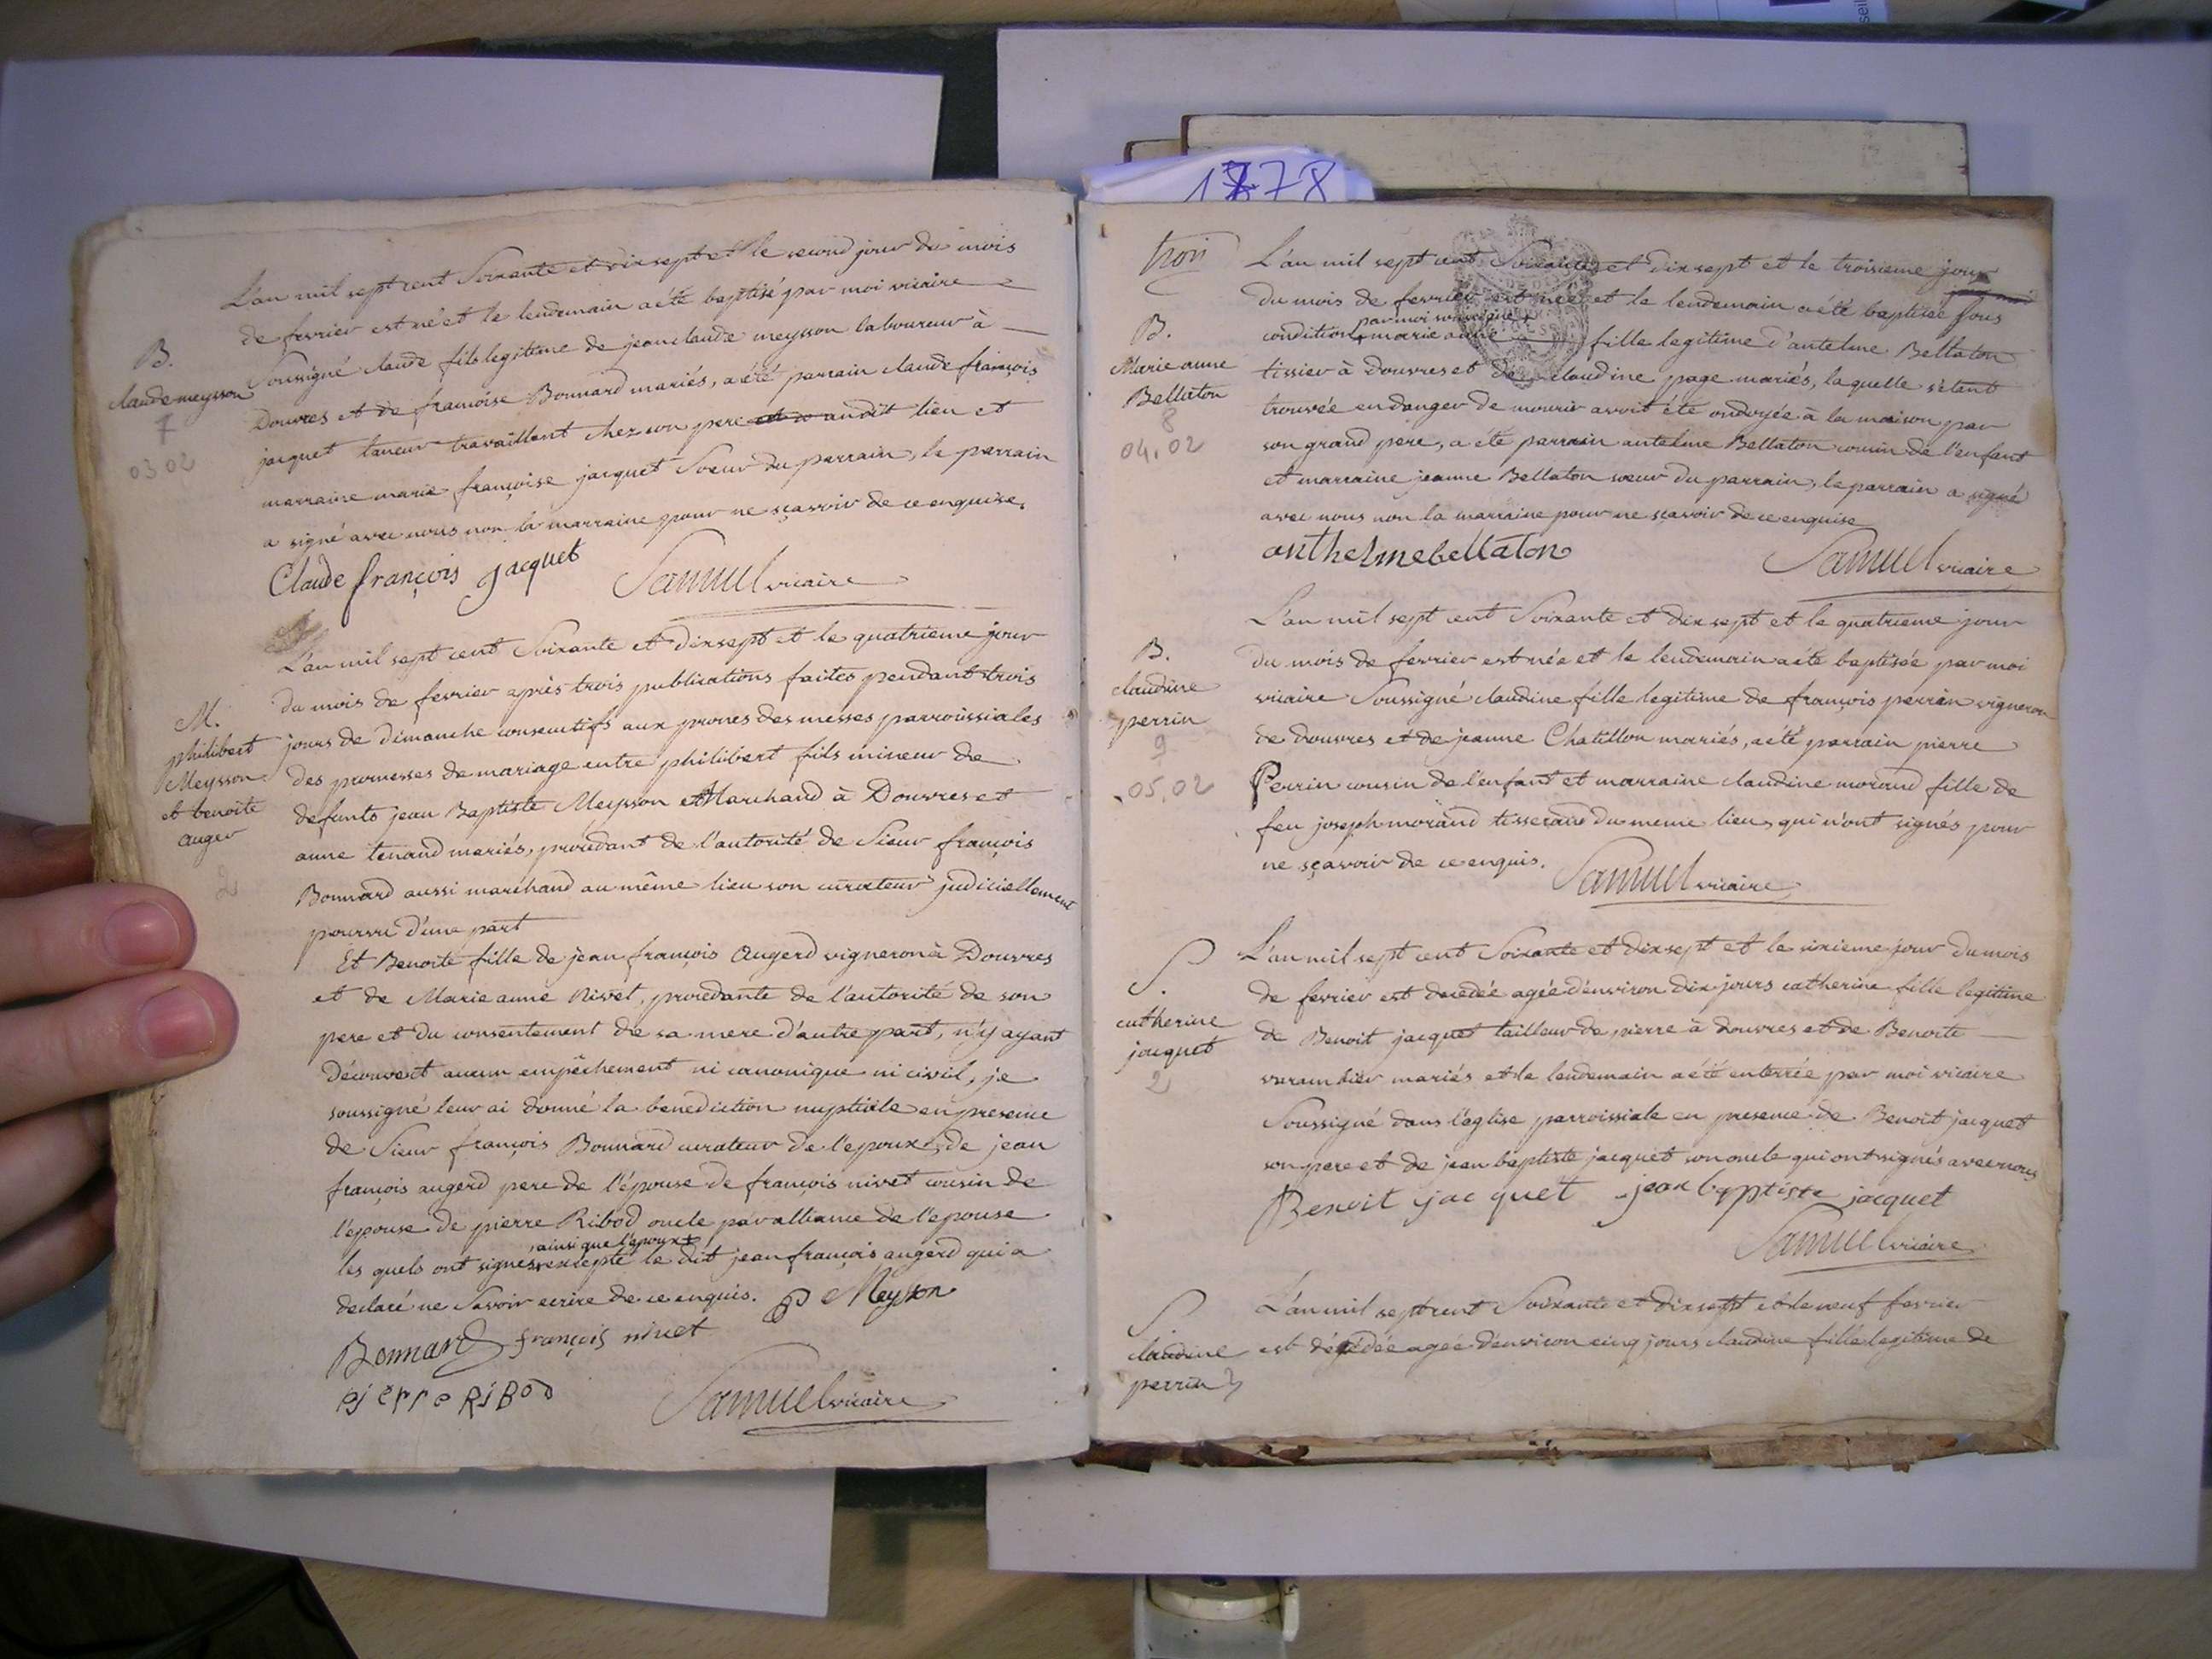 1778
L'an mil sept cent Soixante et dix sept et le second jour du mois
de fevrier est né et le lendemain a été baptisé par moi vicaire
B.
claude meysson
7
03.02
Soussigné claude fils legitime de jean claude meysson laboureur à
Douvres et de françoise Bonnard mariés, a été parrain claude françois
jacquet taneur travaillant chez son pere audit lieu et
marraine marie françoise jacquet Soeur du parrain, le parrain
a signé avec nous non la marraine pour ne sçavoir de ce enquise.
Claude françois jacquet Samuel vicaire
L'an mil sept cent Soixante et dix sept et le quatrieme jour
du mois de fevrier après trois publications faites pendant trois
M.
philibert
Meysson
et benoite
auger
2
jours de dimanche consecutifs aux prones des messes parroissiales
des promesses de mariage entre philibert fils mineur de
defunts jean Baptiste Meysson Marchand à Douvres et
anne tenand mariés, procedant de l'autorité de Sieur françois
Bonnard aussi marchand au même lieu son curateur judiciellement
pourvu d'une part
Et Benoite fille de jean françois Augerd vigneron à Douvres
et de Marie anne Nivet, procedante de l'autorité de son
pere et du consentement de sa mere d'autre part, n'y ayant
découvert aucun empêchement ni canonique ni civil, je
soussigné leur ai donné la benediction nuptiale en presence
de Sieur françois Bonnard curateur de l'epoux, de jean
françois augerd pere de l'épouse de françois nivet cousin de
l'epouse de pierre Ribod oncle par alliance de l'epouse
, ainsi que l'epoux +
les quels ont signés excepté le dit jean françois augerd qui a
declaré ne Savoir ecrire de ce enquis. P Meysson
Bonnard françois nivet
pierre RiBod Samuel vicaire
trois
L'an mil sept cent Soixante et dix sept et le troisieme jour
du mois de fevrier est née et le lendemain a été baptisée sous
par moi soussigné +
B.
Marie anne
Bellaton
8
04.02
condition marie anne fille legitime d'antelme Bellaton
tissier à Douvres et de claudine page mariés, laquelle s'etant
trouvée en danger de mourir avoit été ondoyée à la maison par
son grand pere, a été parrain antelme Bellaton cousin de l'enfant
et marraine jeanne Bellaton soeur du parrain, le parrain a signé
avec nous non la marraine pour ne sçavoir de ce enquise
anthelme bellaton Samuel vicaire
L'an mil sept cent Soixante et dix sept et le quatrieme jour
B.
claudine
perrin
9
05.02
du mois de fevrier est née et le lendemain a été baptisée par moi
vicaire Soussigné claudine fille legitime de françois perrin vigneron
de douvres et de jeanne Chatillon mariés, a été parrain pierre
Perrin cousin de l'enfant et marraine claudine morand fille de
feu joseph morand tisserand du meme lieu, qui n'ont signés pour
ne sçavoir de ce enquis. Samuel vicaire
L'an mil sept cent Soixante et dix sept et le sixieme jour du mois
S.
catherine
jacquet
2
de fevrier est decedée agée d'environ dix jours catherine fille legitime
de Benoit jacquet tailleur de pierre à douvres et de Benoite
varambier mariés et le lendemain a été enterrée par moi vicaire
Soussigné dans l'eglise parroissiale en presence de Benoit jacquet
son pere et de jean baptiste jacquet son oncle qui ont signés avec nous
Benoit jacquet jean baptiste jacquet
Samuel vicaire
S
claudine
perrin 3
L'an mil sept cent Soixante et dix sept et le neuf fevrier
est décédée agée d'environ cinq jours claudine fille legitime de